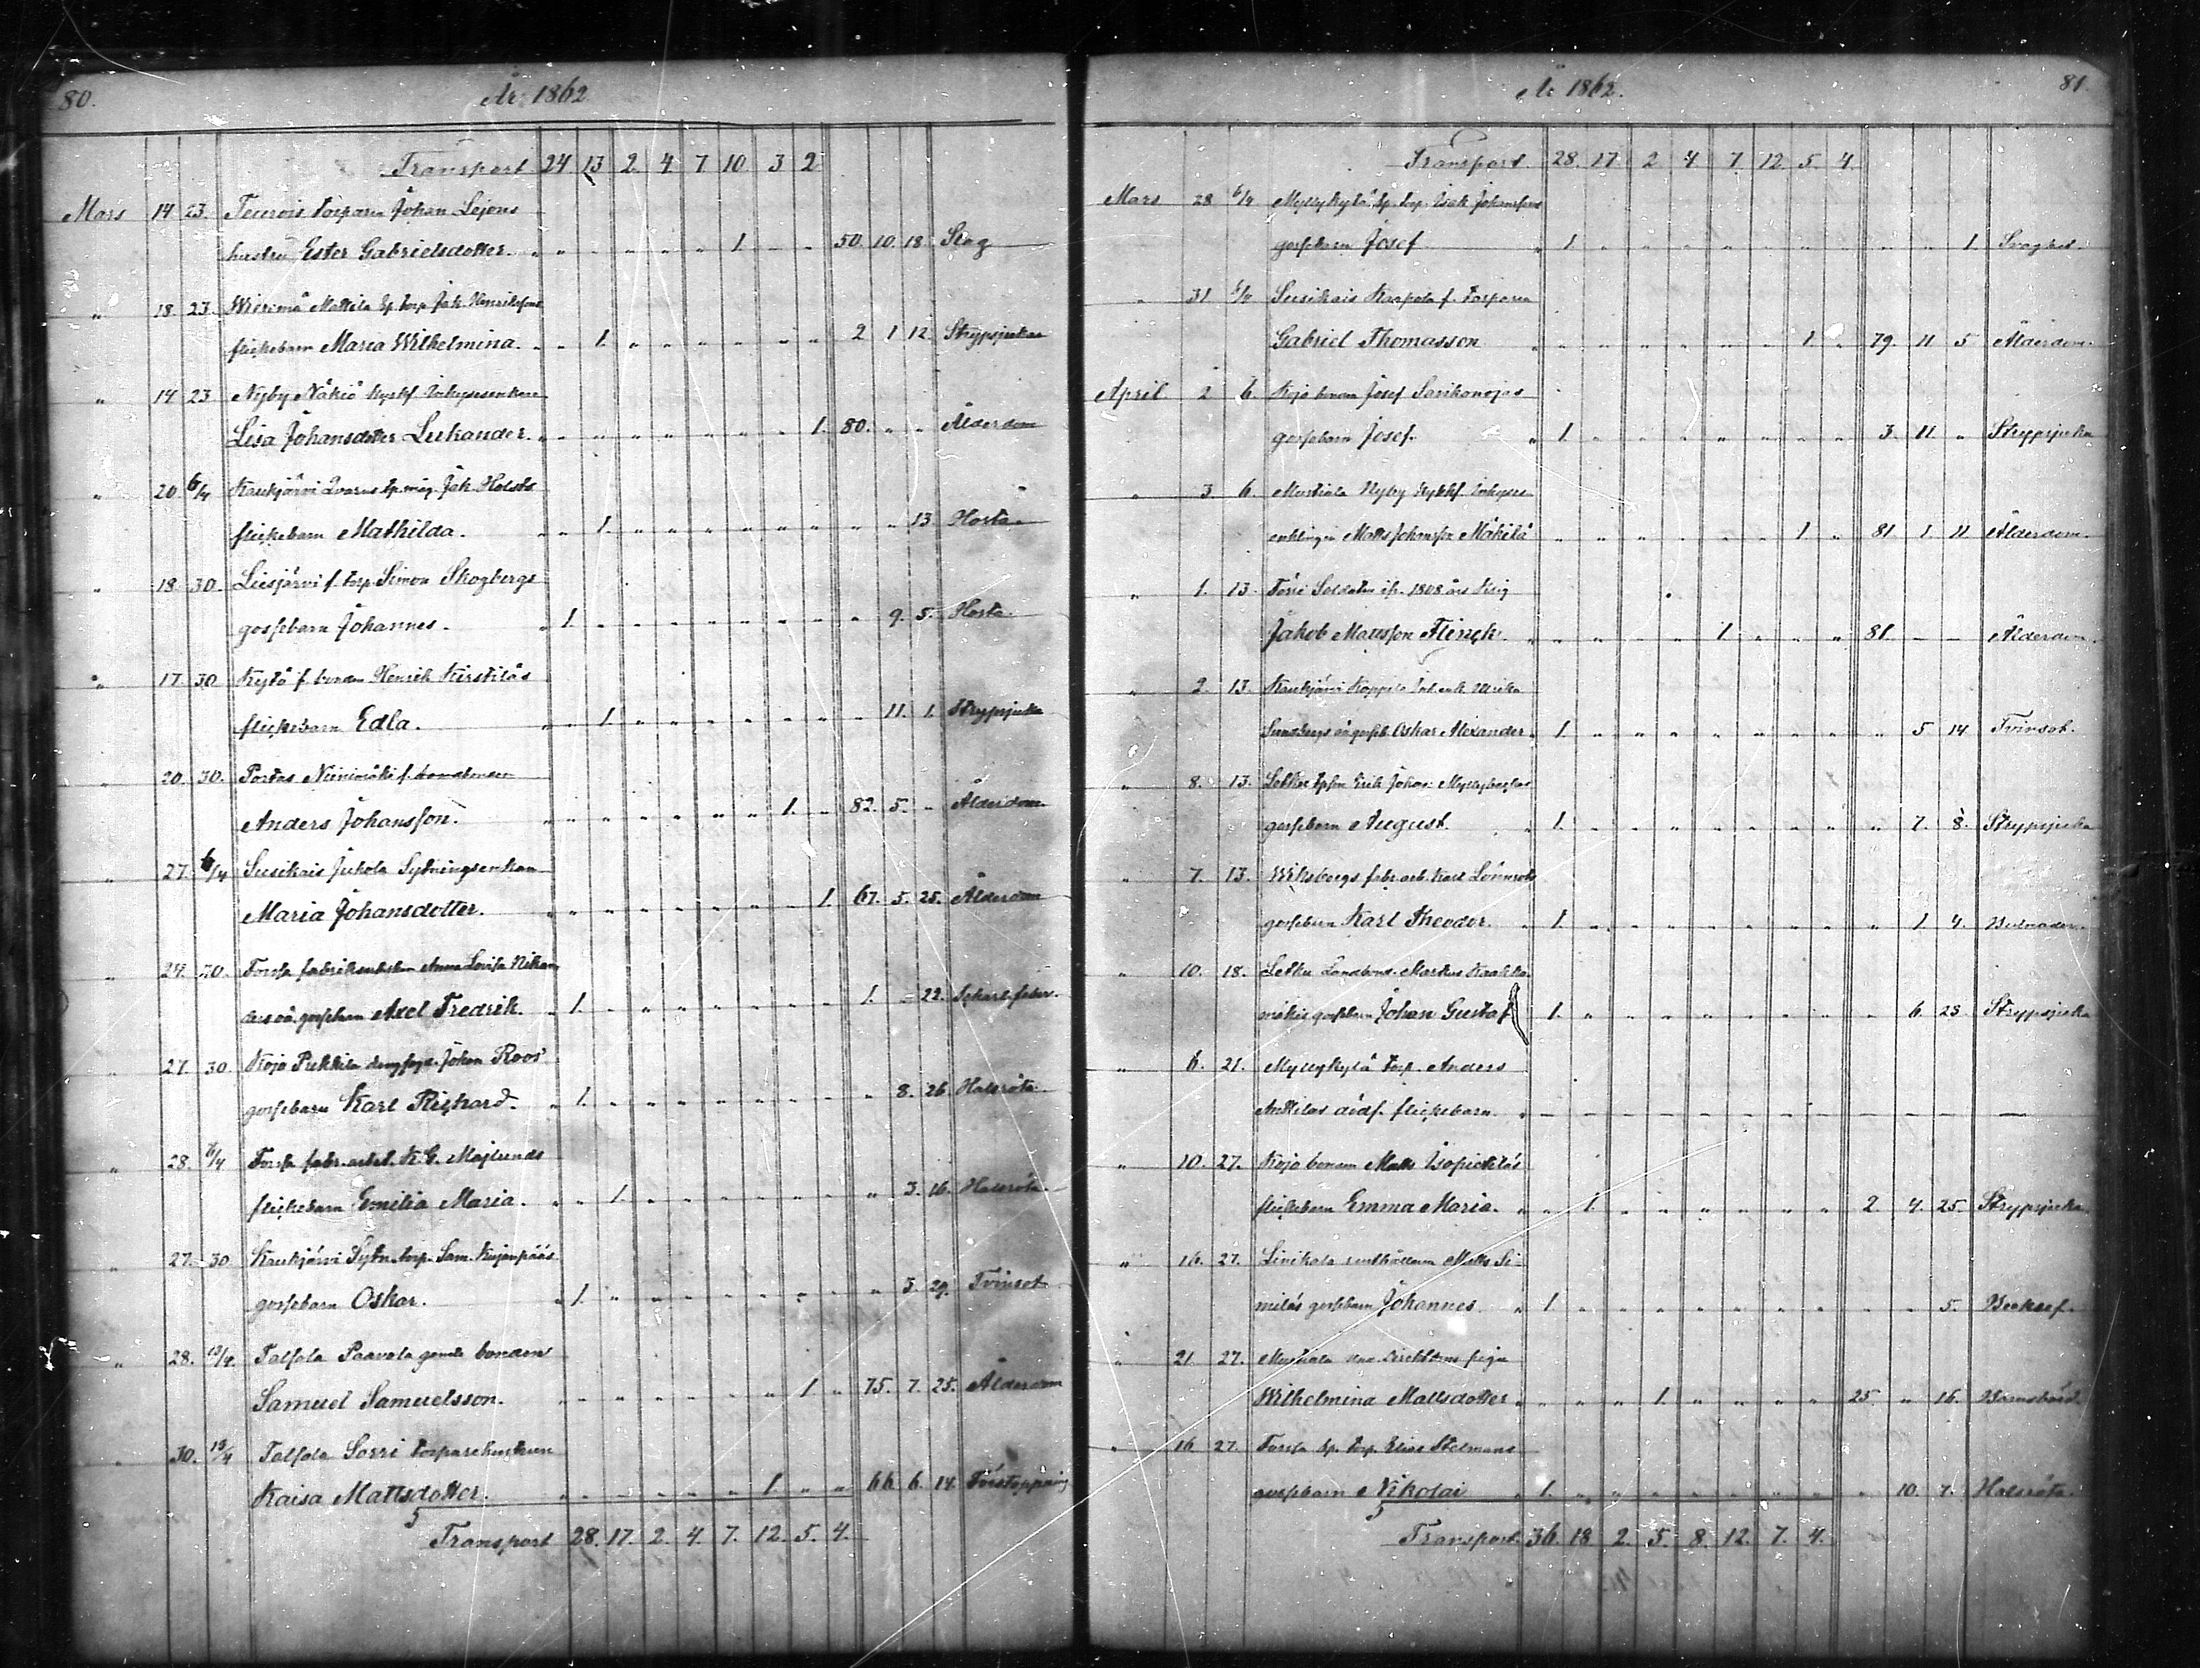 80. År 1862
Transport 24 13 2 4 7 10 3 2
Mars 14 23. Teurois torparen Johan Lejons
hustru Ester Gabrielsdotter. " " " " " " 1. " " 50. 10. 18. Slag
" 18. 23. Mattila Sp. torp. Joh. Henrikssons
flickebarn Maria Wilhelmina. " " 1. " " " " " " 2 1 12. Strypsjukan
" 14 23. Nyby Näkiö Inhysesenkan
Lisa Johansdotter Lukander. " " " " " " " " 1. 80. " " Ålderdom
" 20. 6/4 Kaukjärvi Qvarns Joh. Holsts
flickebarn Mathilda. " " 1. " " " " " " " " 13 Hosta
" 18. 30. Liesjärvi f. torp. Simon Skogbergs
gossebarn Johannes. " 1. " " " " " " " " 9. 5. Hosta
" 17. 30 Kyrö f. bonden Henrik Kirstiläs
flickebarn Edla. " " 1. " " " " " " " 11. 1. Strypsjuka
" 20. 30. Portas Niinimäki f. landbonden
Anders Johansson. " " " " " " " 1. " 82. 5. " Ålderdom
" 27. 6/4 Susikais Jukola Sytningsenkan
Maria Johansdotter. " " " " " " " " 1. 67. 5. 25. Ålderdom
" 24. 30. Forssa Anna Lovisa
oä. gossebarn Axel Fredrik. " 1. " " " " " " " 1. - 22. Scharl. feber.
" 27. 30 Kojo Pukkila Johan Roos'
gossebarn Karl Richard. " 1. " " " " " " " " 8. 26 Halsröta
" 28. 6/4 Forssa fabr. arbet. K. G. Majlunds
flickebarn Emilia Maria. " " 1. " " " " " " " 3. 16. Halsröta.
" 27. 30 Kaukjärvi Sytn. torp. Sam. Kujanpääs
gossebarn Oskar. " 1. " " " " " " " " 3. 29. Tvinsot
" 28. 13/4. Talsola Paavola gamla bonden
Samuel Samuelsson. " " " " " " " 1. " 75. 7. 25. Ålderdom
" 30. 13/4 Talsola Sorri torparehustrun
Kaisa Mattsdotter. " " " " " " 1 " " 66 6. 14. Förstoppning
5
Transport 28. 17. 2. 4. 7. 12. 5. 4.
År 1862. 81
Transport. 28. 17 2 4 7. 12 5 4.
Mars 28 6/4 Myllykylä Sp. torp. Isak Johanssons
gossebarn Josef " 1. " " " " " " " " " 1. Svaghet
" 31 6/4 Susikais Kaapola f. torparen
Gabriel Thomasson " " " " " " " 1. " 79. 11 5 Ålderdom.
April 2 6. Kojo bonden Josef Sarikonojas
gossebarn Josef. " 1. " " " " " " " 3. 11. " Strypsjuka
" 3 6. Mustiala Nyby Inhyses
enklingen Matts Johansson Mäkilä " " " " " " " 1 " 81 1 11 Ålderdom.
" 1. 13. Förre Soldaten ifr. 1808 års Krig
Jakob Mattsson Flinck. " " " " " 1 " " " 81. - - Ålderdom.
" 2. 13. Kaukjärvi Koppila Inh. enk. Ulrika
Sundbergs oä gosseb. Oskar Alexander " 1. " " " " " " " " 5 14 Tvinsot.
" 8. 13. Letku Erik Johan
gossebarn August. " 1. " " " " " " " " 7. 8. Strypsjuka
" 7. 13. Wiksbergs fabr. arb. Karl Lönnrots
gossebarn Karl Theodor. " 1. " " " " " " " " 1 4.
" 10. 18. Letku Landbond. Markus Kaakka
mäkis gossebarn Johan Gustaf 1. " " " " " " " " 6. 23. Strypsjuka
" 6. 21. Myllykylä torp. Anders
Anttilas dödf. flickebarn. " - - - - - - - - - - - -
" 10. 27. Kojo bonden Matts Isopietiläs
flickebarn Emma Maria. " " 1. " " " " " " 2. 4. 25. Strypsjuka
" 16. 27. Linikala rusthållaren Matts Si-
miläs gossebarn Johannes. " 1. " " " " " " " " " 5.
" 21. 27. Mustiala Direktörens piga
Wilhelmina Mattsdotter " " " " 1. " " " " 25 " 16. Barnsbörd.
" 16 27. Forssa Sp. torp. Elias Stelmans
gossebarn Nikolai " 1. " " " " " " " " 10. 7. Halsröta.
5
Transport. 36. 18 2. 5. 8. 12. 7. 4.